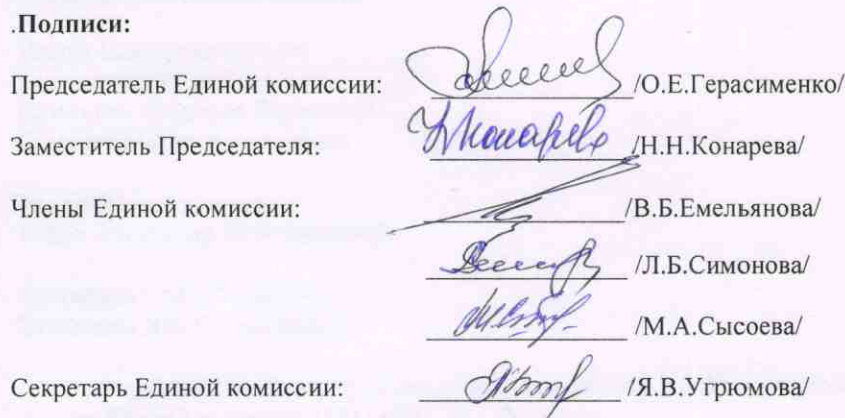 .Подписи:
Председатель Единой комиссии: /О.Е.Герасименко/
Заместитель Председателя: /Н.Н.Конарева/
Члены Единой комиссии: /В.Б.Емельянова/
/Л.Б.Симонова/
/М.А.Сысоева/
Секретарь Единой комиссии: /Я.В.Угрюмова/